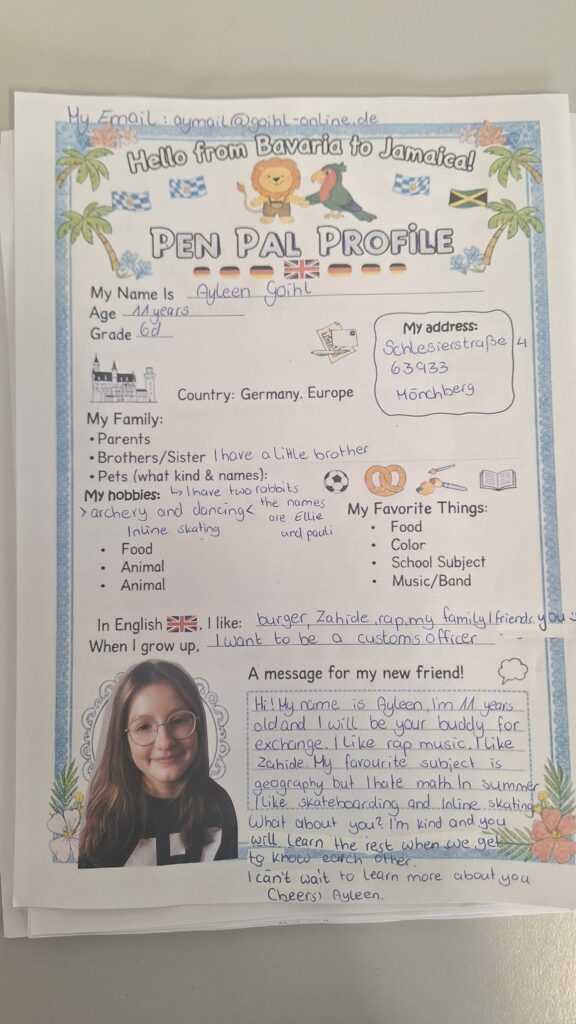 My Email: aymail@goihl-online.de
Hello from Bavaria to Jamaica!
PEN PAL PROFILE
My Name Is Ayleen Goihl
Age 11 years
Grade 6d
My address:
Schlesierstraße 4
63933
Mönchberg
Country: Germany. Europe
My Family:
• Parents
• Brothers/Sister I have a little brother
• Pets (what kind & names):
↳ I have two rabbits
the names
are Ellie
and pauli
My hobbies:
> archery and dancing <
Inline skating
• Food
• Animal
• Animal
My Favorite Things:
• Food
• Color
• School Subject
• Music/Band
In English, I like: burger, Zahide, rap, my family, friends, you :)
When I grow up, I want to be a customs officer
A message for my new friend!
Hi! My name is Ayleen, I'm 11 years
old and I will be your buddy for
exchange. I like rap music. I like
Zahide. My favourite subject is
geography but I hate math. In summer
I like skateboarding and Inline skating
What about you? I'm kind and you
will learn the rest when we get
to know each other.
I can't wait to learn more about you
Cheers! Ayleen.